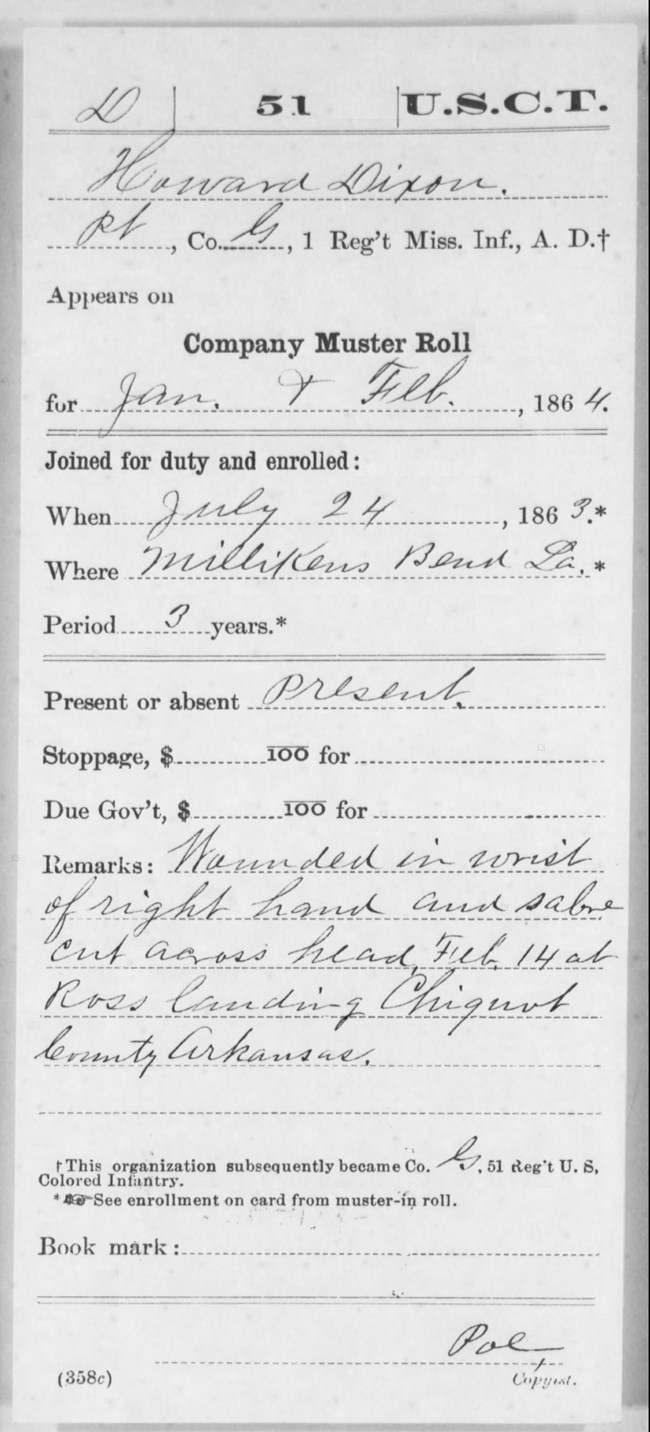 D | 51 | U.S.C.T.
Howard Dixon.
Pt, Co. G, 1 Reg't Miss. Inf., A. D.†
Appears on
Company Muster Roll
for Jan. & Feb., 1864.
Joined for duty and enrolled:
When July 24, 1863.*
Where Millikens Bend La.*
Period 3 years.*
Present or absent Present.
Stoppage, $ 100 for
Due Gov't, $ 100 for
Remarks: Wounded in wrist
of right hand and sabre
cut across head, Feb. 14 at
Ross landing Chiquot
County Arkansas.
†This organization subsequently became Co. G, 51 Reg't U. S.
Colored Infantry.
*☞See enrollment on card from muster-in roll.
Book mark:
(358c)
Copyist.